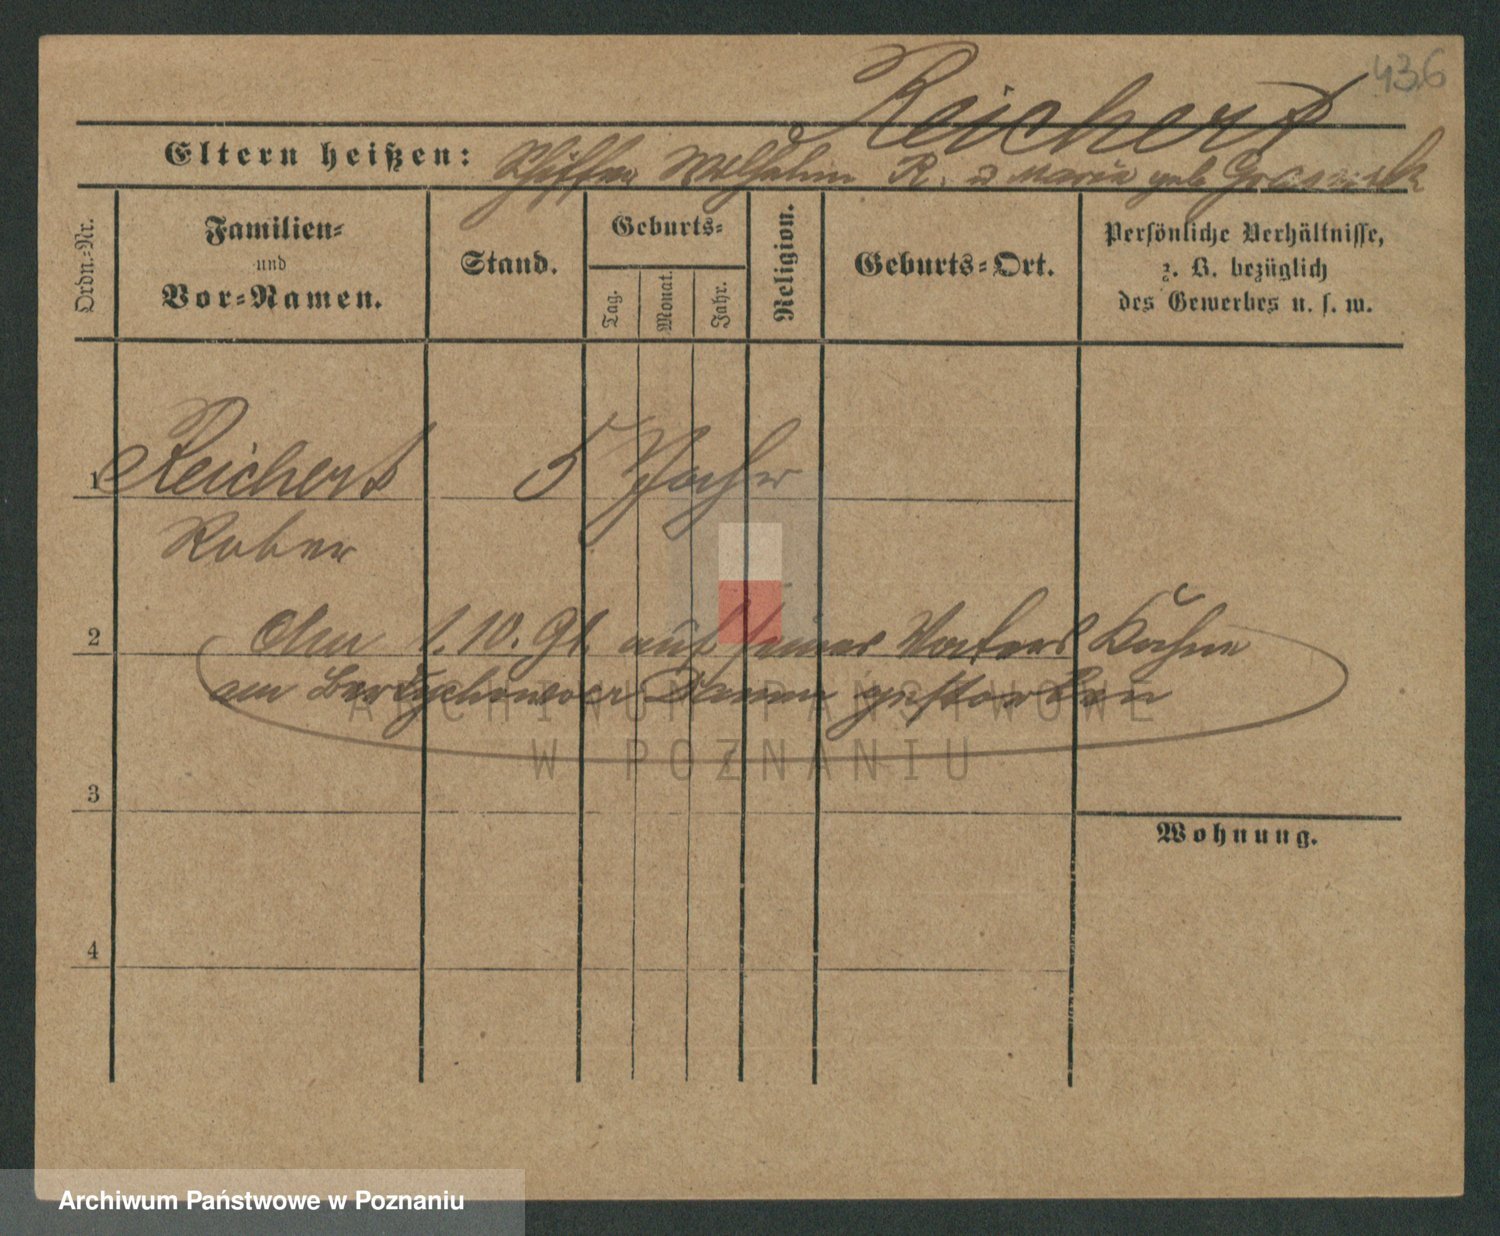 436
Reichert
Eltern heißen: Schiffer Wilhelm R. u Maria geb
Ordn.-Nr.
Familien-
und
Vor-Namen.
Stand.
Geburts-
Tag.
Monat.
Jahr.
Religion.
Geburts-Ort.
Persönliche Verhältnisse,
z. B. bezüglich
des Gewerbes u. s. w.
1 Reichert 5 Wochen
Rober
2 Am 1.10.91. auf seines Vaters Kahne
am Damm gestorben
ARCHIWUM PAŃSTWOWE
W POZNANIU
3
Wohnung.
4
Archiwum Państwowe w Poznaniu